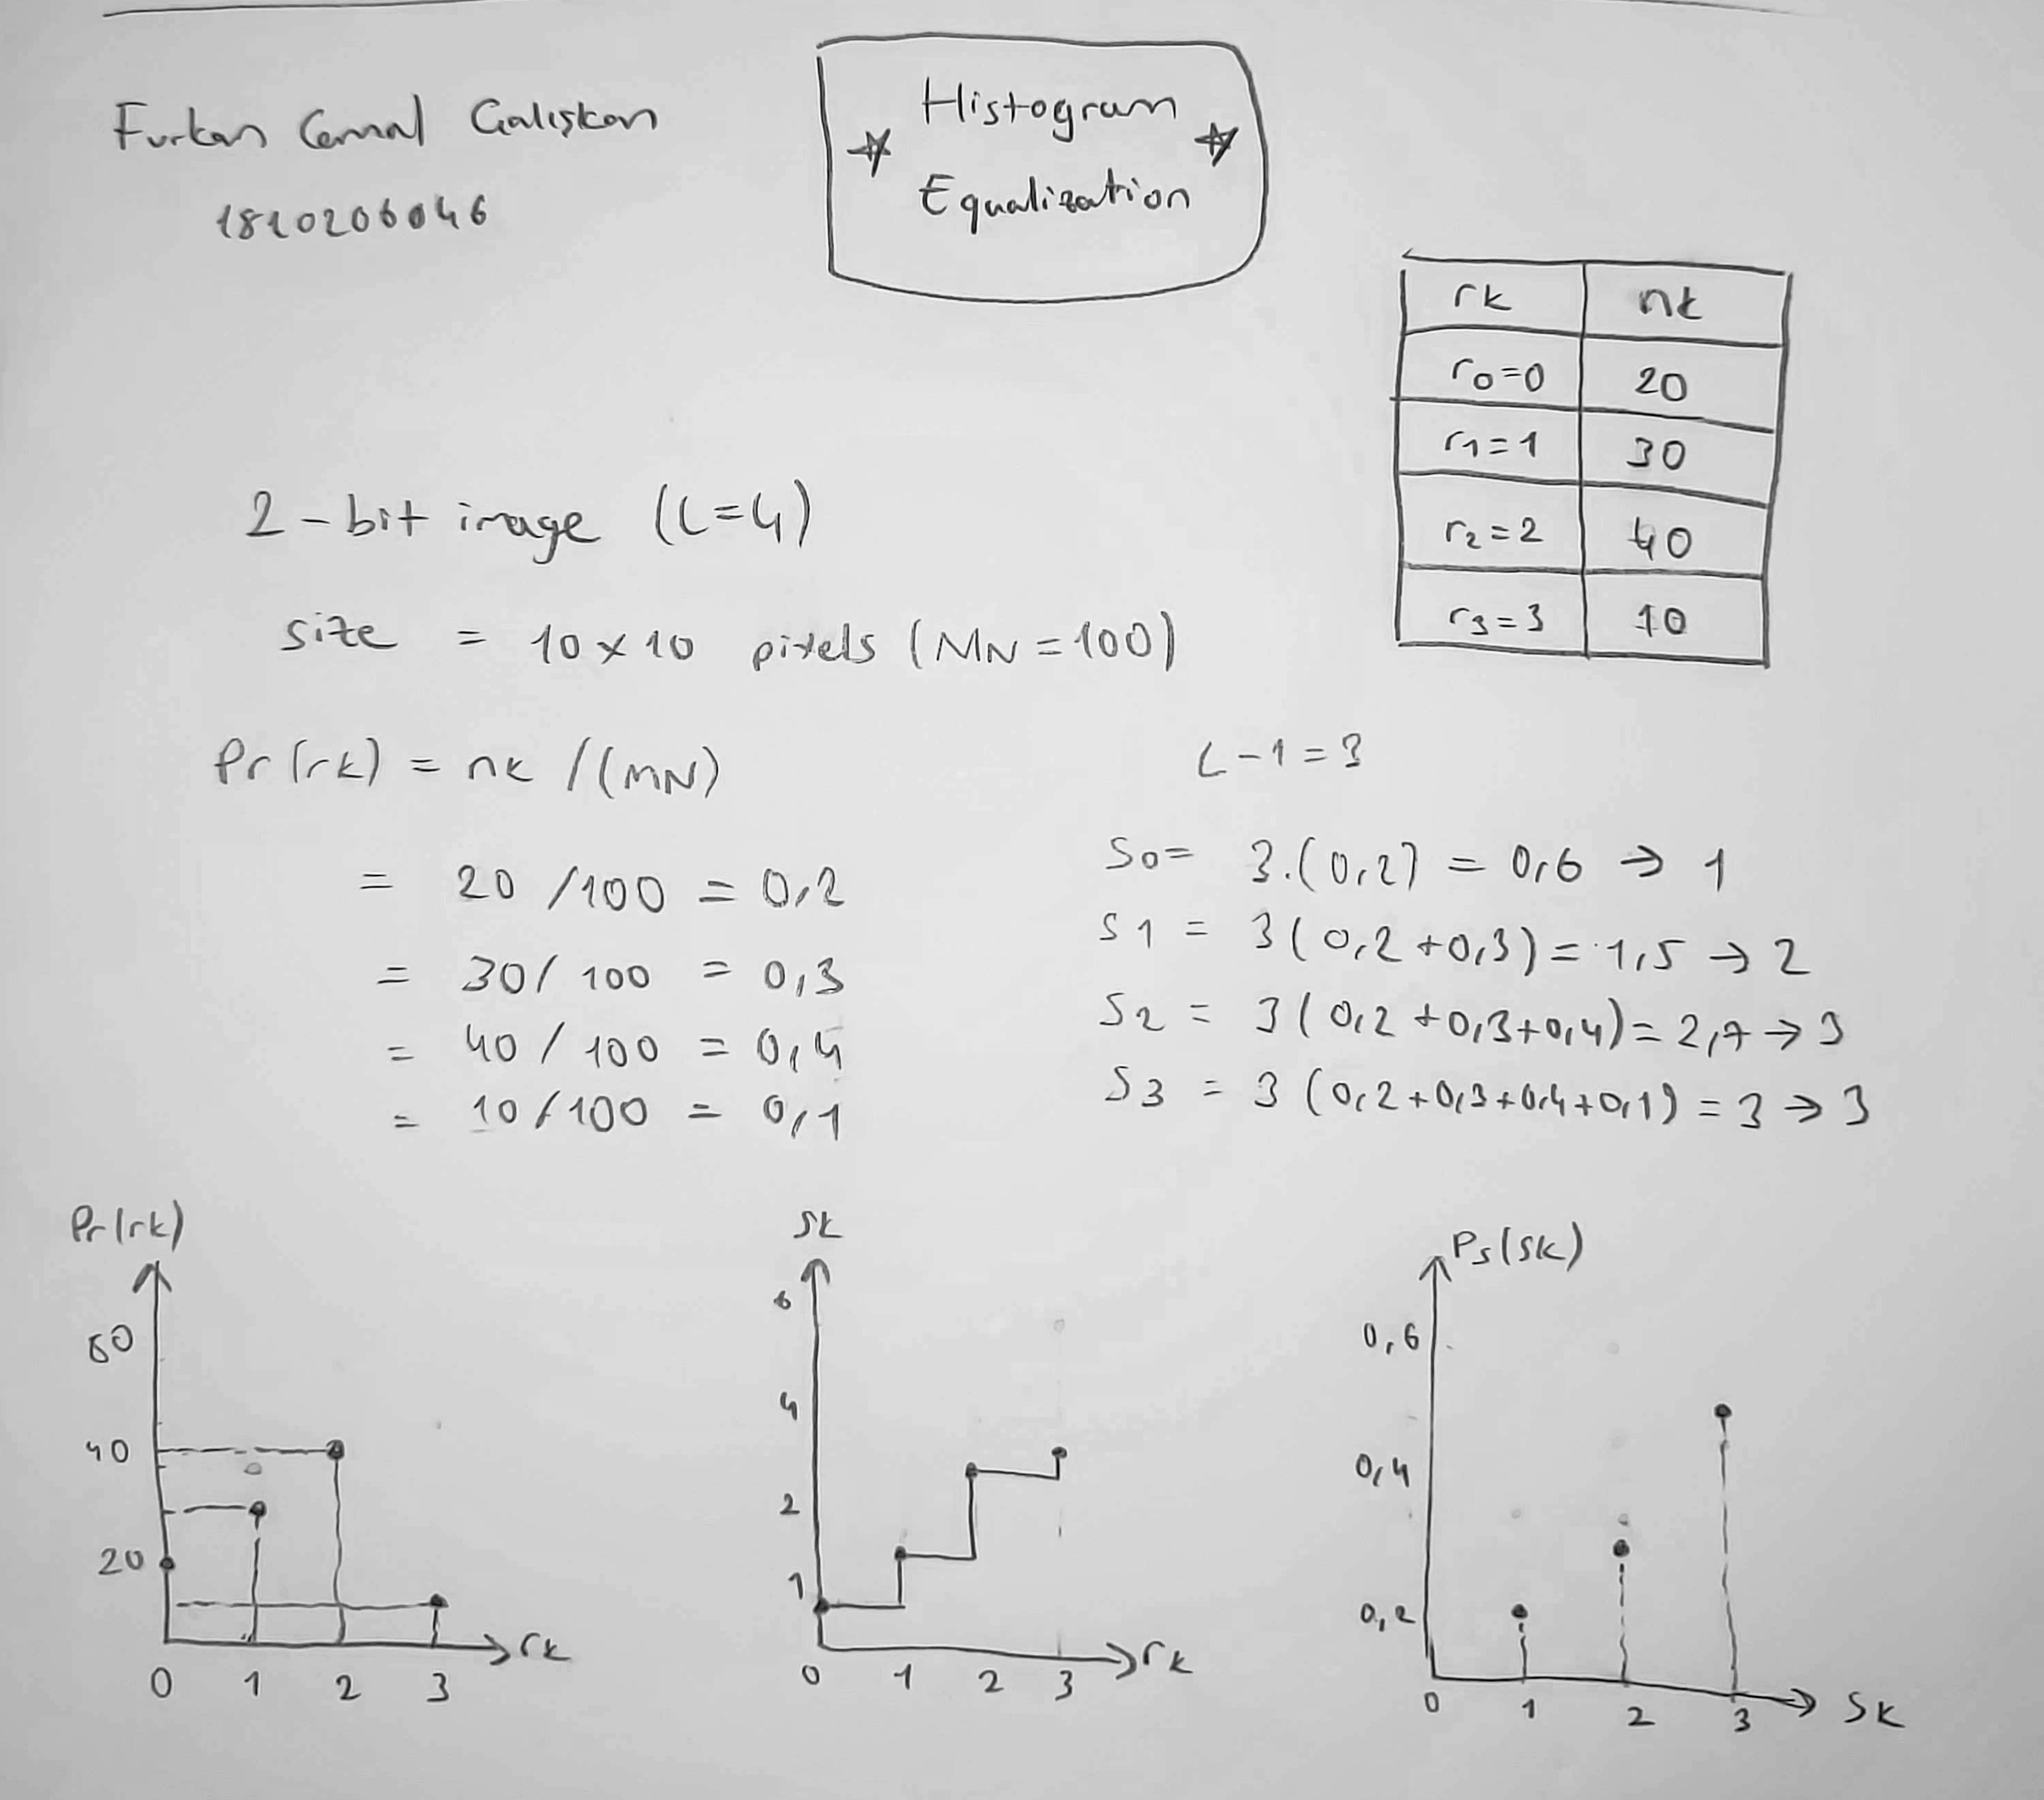 Furkan Cemal Çalışkan
1810206046
Histogram
Equalization
rk nk
r0=0 20
r1=1 30
r2=2 40
r3=3 10
2-bit image (L=4)
size = 10x10 pixels (MN=100)
Pr(rk) = nk /(MN)
= 20 /100 = 0,2
= 30/ 100 = 0,3
= 40 / 100 = 0,4
= 10/100 = 0,1
L-1=3
S0= 3.(0,2) = 0,6 → 1
S1 = 3(0,2+0,3)= 1,5 → 2
S2 = 3(0,2+0,3+0,4)= 2,7 → 3
S3 = 3 (0,2+0,3+0,4+0,1) = 3 → 3
Pr(rk)
60
40
20
0 1 2 3
rk
Sk
6
4
2
1
0 1 2 3
rk
Ps(Sk)
0,6
0,4
0,2
0 1 2 3
Sk